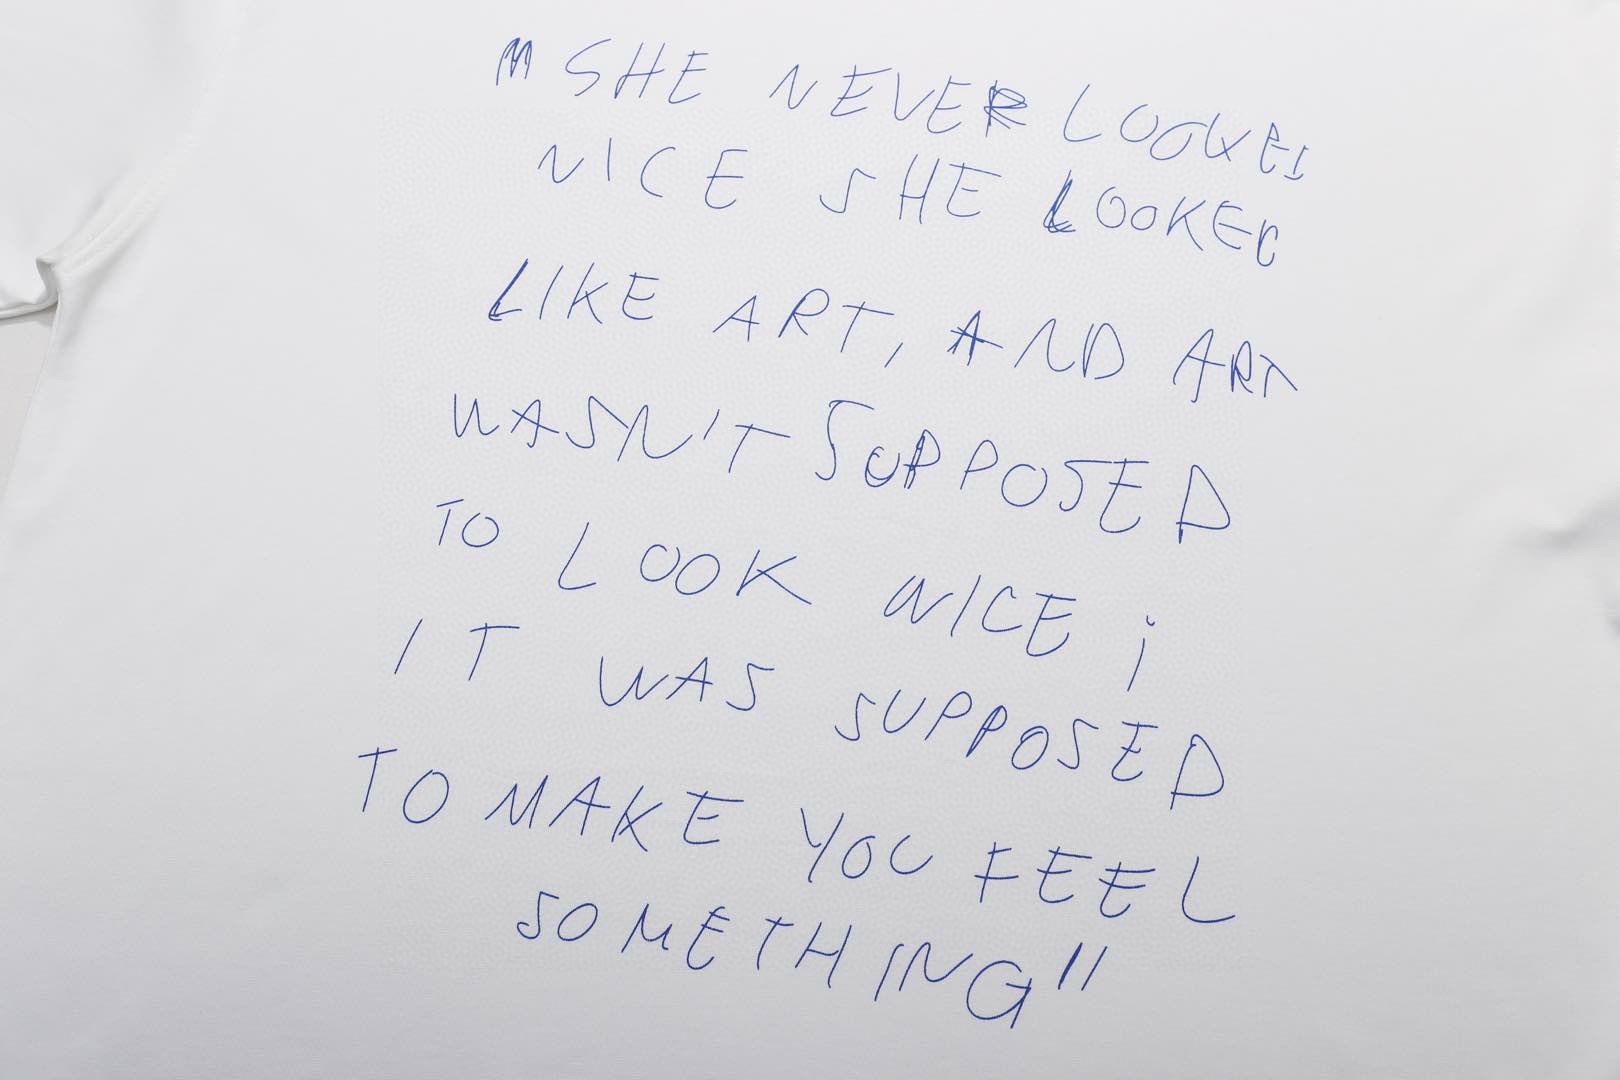 " SHE NEVER LOOKED
NICE SHE LOOKED
LIKE ART, AND ART
WASN'T SUPPOSED
TO LOOK NICE ;
IT WAS SUPPOSED
TO MAKE YOU FEEL
SOMETHING"